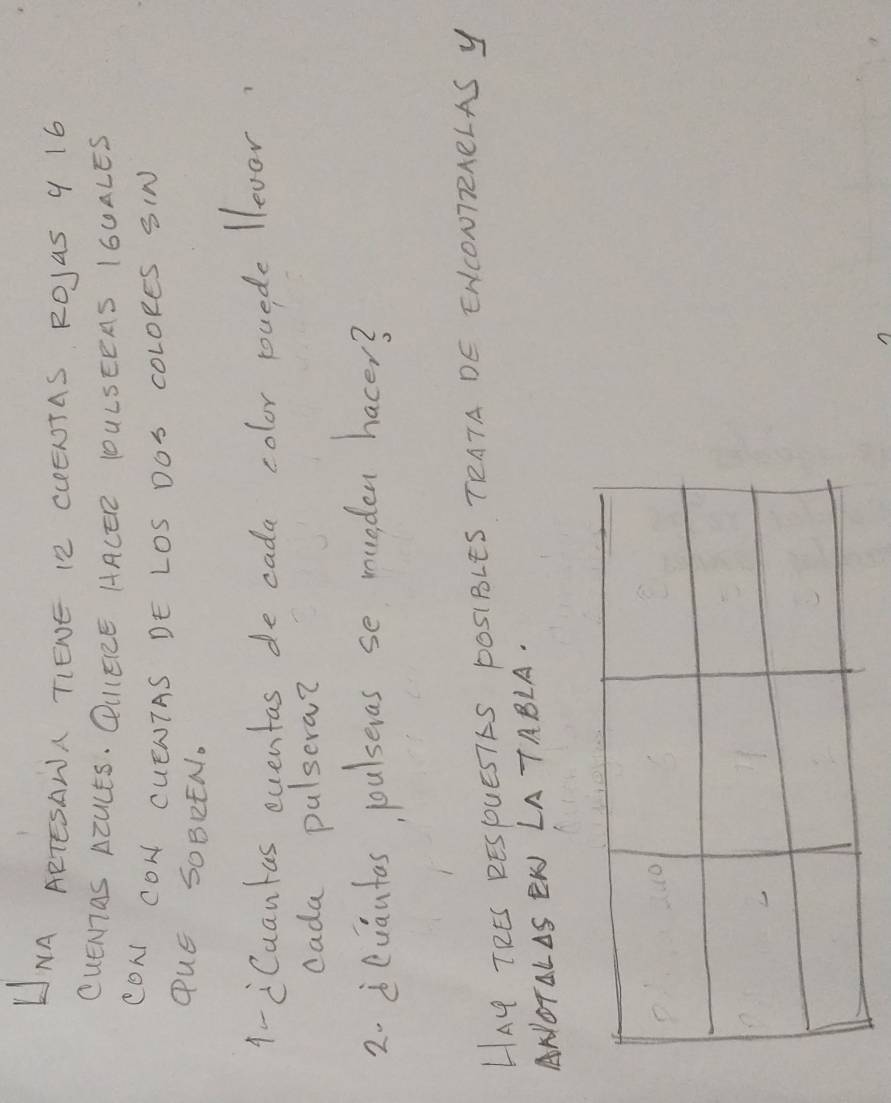 UNA ARTESANA TIENE 12 CUENTAS ROJAS Y 16
CUENTAS AZULES. QUIERE HACER PULSERAS IGUALES
CON CON CUENTAS DE LOS DOS COLORES SIN
QUE SOBREN.
1- ¿Cuantas cuentas de cada color puede llevar
cada pulsera?
2. ¿Cuántas pulseras se pueden hacer?
HAY TRES RESPUESTAS POSIBLES TRATA DE ENCONTRARLAS Y
ANOTALAS EN LA TABLA.